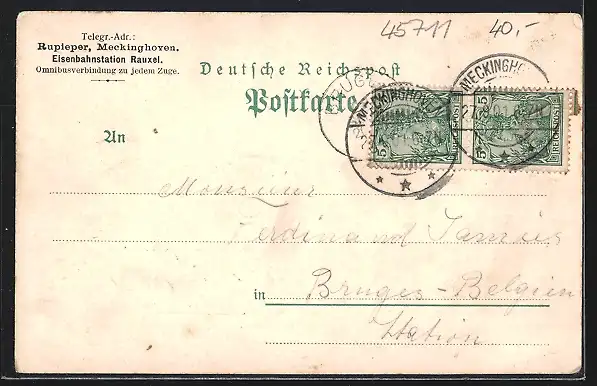 45711 40,-
Telegr.-Adr.:
Rupieper, Meckinghoven.
Eisenbahnstation Rauxel.
Omnibusverbindung zu jedem Zuge.
Deutsche Reichspost
Postkarte
MECKINGHOV
MECKINGHO
5 5
REICHSPOST
An
Monsieur
Ferdinand
in Bruges-Belgien
Station